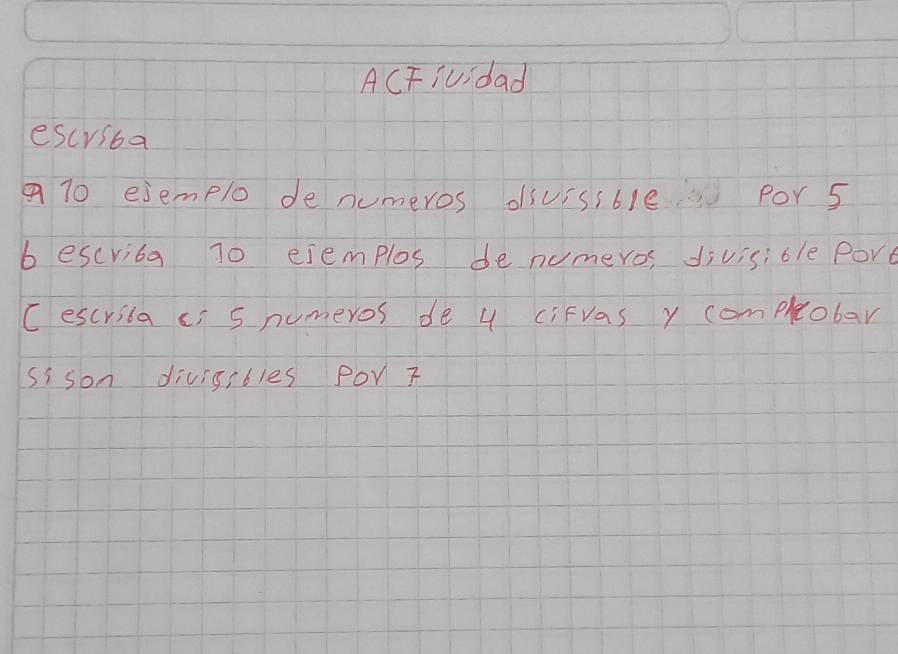 ACtividad
escriba
a 10 ejemplo de numeros divisible por 5
b escriba 10 ejemplos de numeros divisible por 6
C escriba 5 numeros de 4 cifras y comprobar
si son divisibles por 7